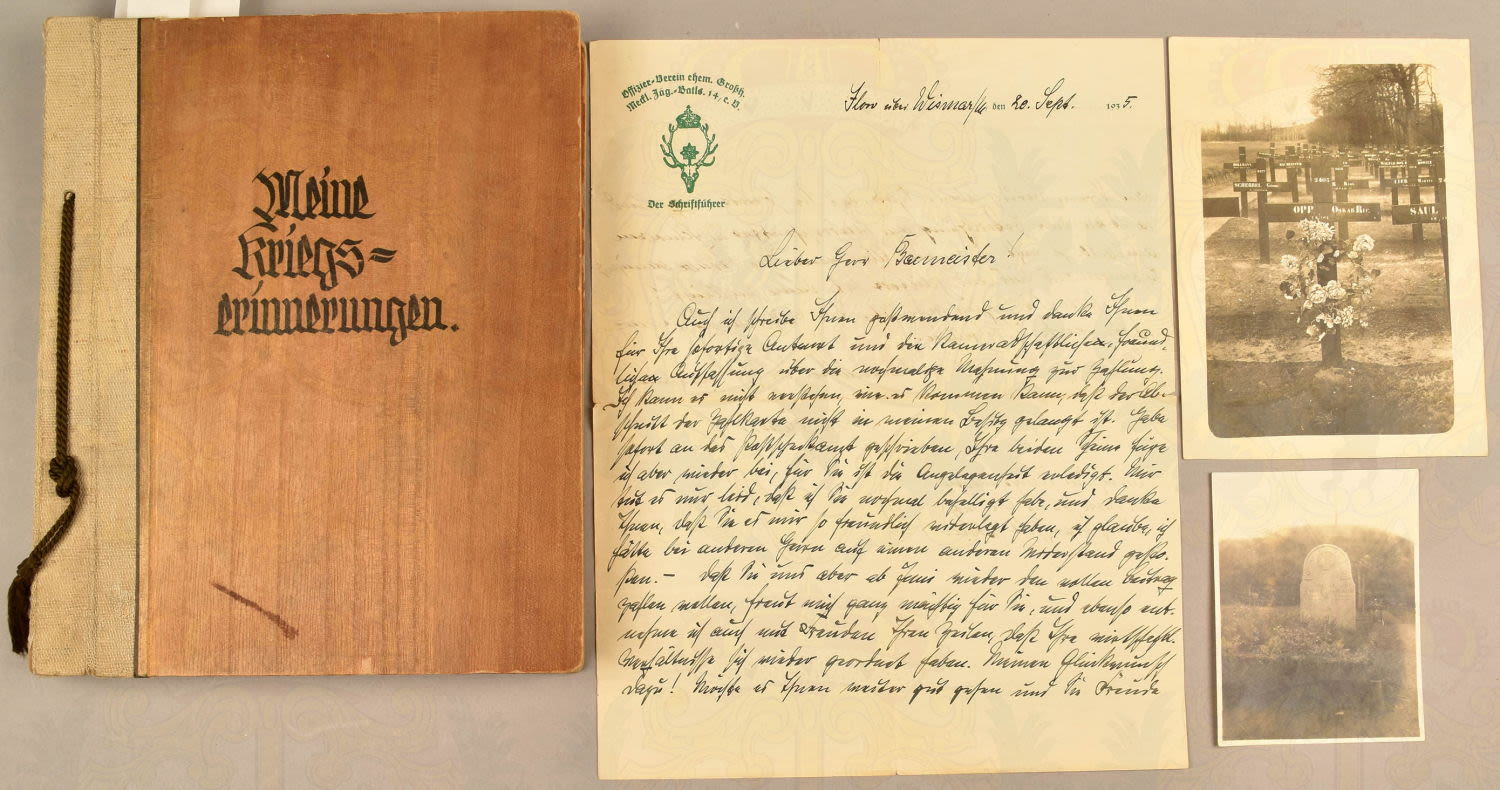 Meine
Kriegs=
erinnerungen.
Offizier-Verein ehem. Großh.
Meckl. Jäg.-Batls. 14, e. V.
Der Schriftführer
Ilow über Wismar den 20. Sept. 1935.
Lieber Herr Bacmeister!
Auch ich schreibe Ihnen postwendend und danke Ihnen
für Ihre sofortige Antwort und die kameradschaftlichen, freund-
lichen Auffassung über die nochmalige Mahnung zur Zahlung.
Ich kann es nicht verstehen, wie es kommen kann, daß der Ab-
schnitt der Zahlkarte nicht in meinen Besitz gelangt ist. Habe
sofort an das Postscheckamt geschrieben, Ihre beiden Scheine füge
ich aber wieder bei, für Sie ist die Angelegenheit erledigt. Mir
tut es nur leid, daß ich Sie nochmal behelligt habe, und danke
Ihnen, daß Sie es mir so freundlich widerlegt haben, ich glaube, ich
hätte bei anderen Herrn auf einen anderen Widerstand gesto-
ßen. — Daß Sie uns aber ab Juni wieder den vollen Beitrag
zahlen wollen, freut mich ganz mächtig für Sie, und ebenso ent-
nehme ich auch mit Freuden Ihren Zeilen, daß Ihre wirtschaftl.
Verhältnisse sich wieder geordnet haben. Meinen Glückwunsch
dazu! Möchte es Ihnen weiter gut gehen und Sie Freude
SCHERBEL
2405
OPP OSKAR
SAUL